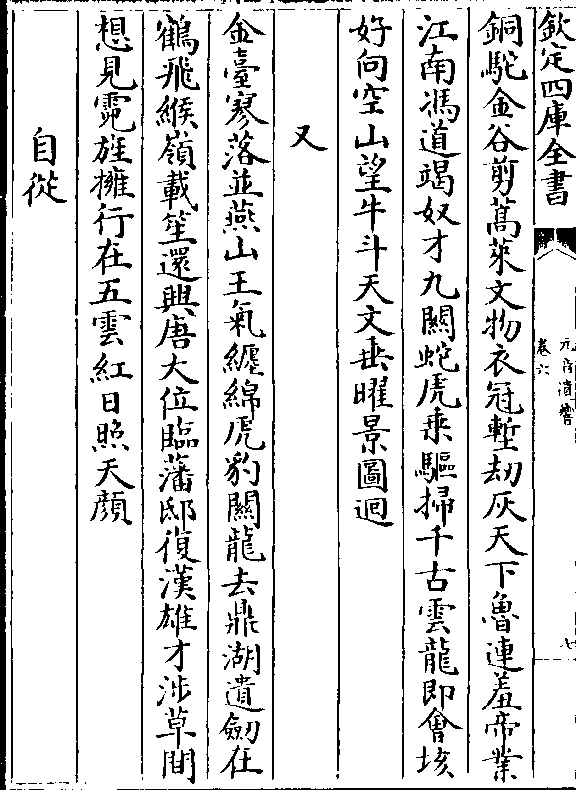 欽定四庫全書
元音遺響
卷六
銅駝金谷剪蒿萊文物衣冠塹劫灰天下魯連羞帝業
江南馮道竭奴才九關蛇虎乗驅掃千古雲龍即㑹垓
好向空山望牛斗天文垂曜景圖迴
又
金臺寥落並燕山王氣纏綿虎豹關龍去鼎湖遺劒在
鶴飛緱嶺載笙還興唐大位臨藩邸復漢雄才涉草間
想見霓旌擁行在五雲紅日照天顔
自從